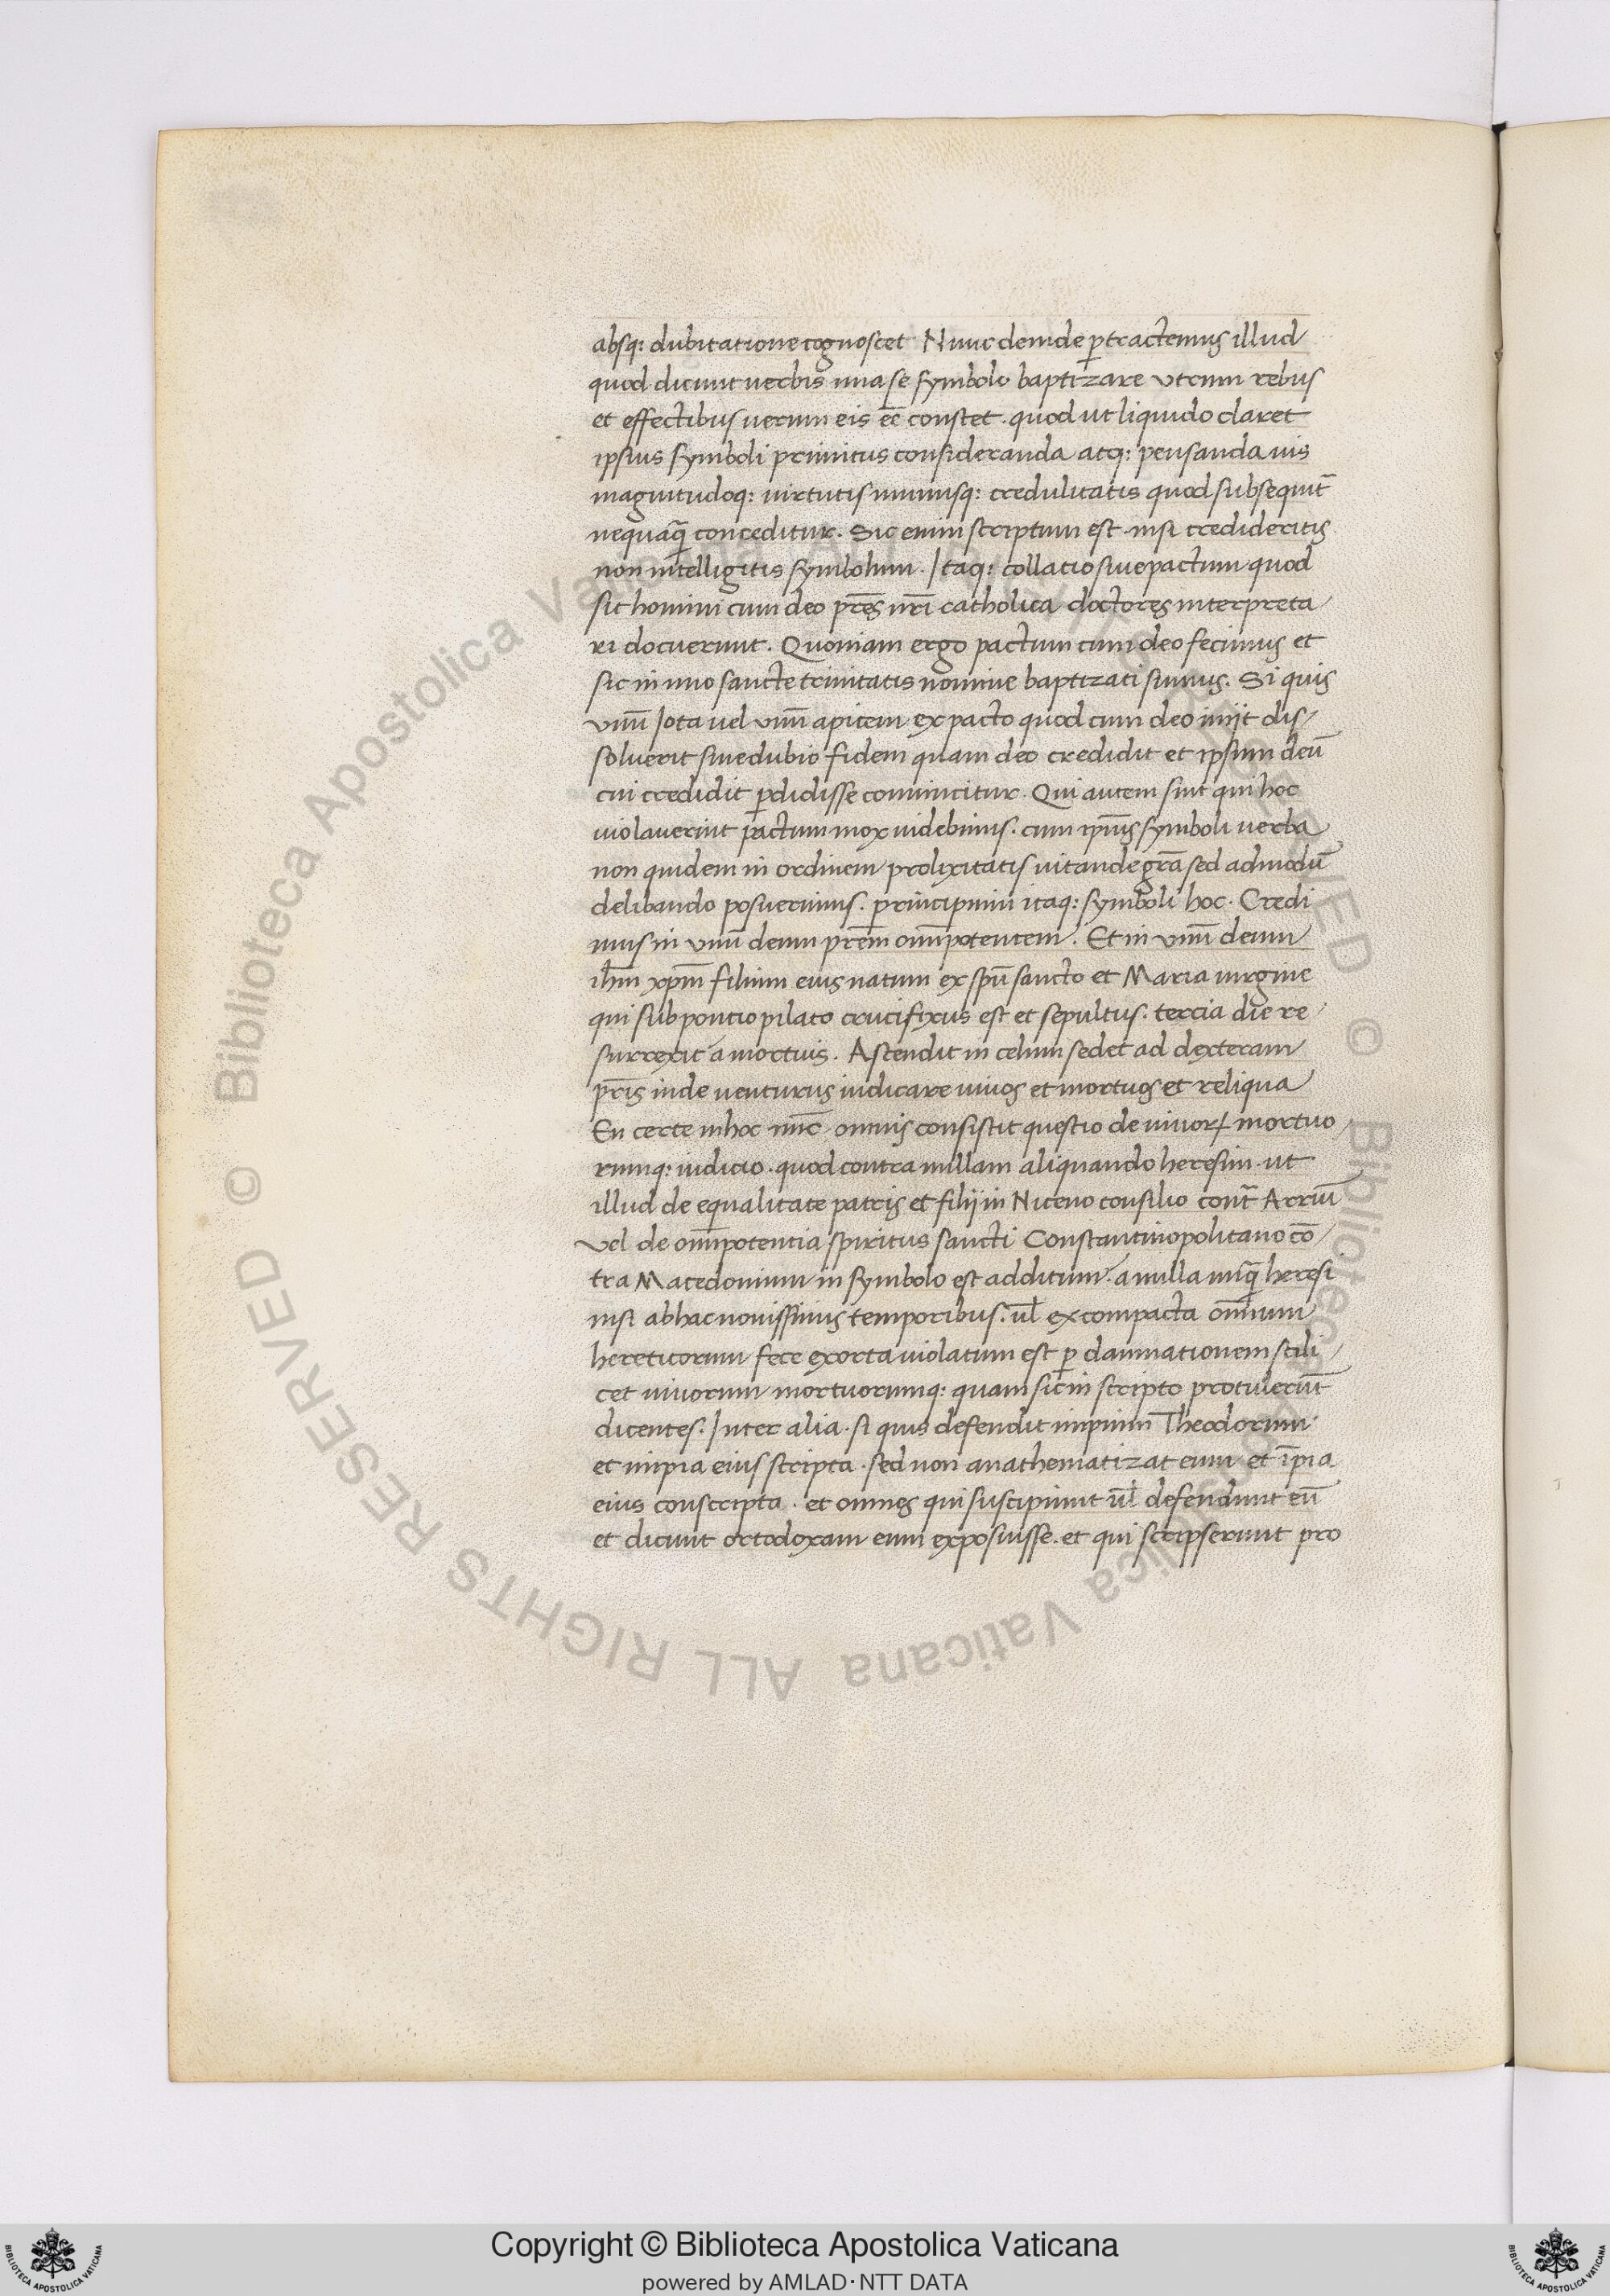 absq: dubitatione cognoscet Nunc deinde ꝑtractemus illud
quod dicunt uerbis una se symbolo baptizare vtrum rebus
et effectibus uerum eis eē constet. quod ut liquido claret
ipsius symboli primitus consideranda atq: pensanda uis
magnitudoq: uirtutis munusq: credulitatis quod subsequit̄
nequaq̄ conceditur. Sic enim scriptum est. nisi credideritis
non intelligitis symbolum. Itaq: collatio siue pactum quod
sit homini cum deo pr̄es nr̄i catholica doctores interpreta/
ri docuerunt. Quoniam ergo pactum cum deo fecimus et
sic in uno sancte trinitatis nomine baptizati sumus. Si quis
vnū Iota uel vnū apicem ex pacto quod cum deo inijt dis/
soluerit sine dubio fidem quam deo credidit et ipsum deū
cui credidit ꝑdidisse conuincitur. Qui autem sint qui hoc
uiolauerint pactum mox uidebimus. cum ip̄ius symboli uerba
non quidem in ordinem prolixitatis uitande gr̄a sed admodū
delibando posuerimus. principium itaq: symboli hoc. Credi
mus in vnū deum pr̄em om̄ipotentem. Et in vnū deum
ih̄m xp̄m filium eius natum ex sp̄u sancto et Maria uirgine
qui sub pontio pilato crucifixus est et sepultus. tercia die re/
surrexit a mortuis. Ascendit in celum sedet ad dexteram
pr̄is inde venturus iudicare uiuos et mortuos et reliqua
En certe in hoc nūc omnis consistit questio de uiuorꝝ mortuo/
rumq: iudicio. quod contra nullam aliquando heresim. ut
illud de equalitate patris et filij in Niceno consilio cont̄ Arriū
vel de om̄ipotentia spiritus sancti Constantinopolitano cō/
tra Macedonium in symbolo est additum. a nulla unq̄ heresi
nisi ab hac nouissimis temporibus. ul̄ ex compacta om̄ium
hereticorum fece exorta uiolatum est ꝑ damnationem scili/
cet uiuorum mortuorumq: quam sic in scripto protulerūt
dicentes. Inter alia. si quis defendit impium Theodorum
et impia eius scripta. sed non anathematizat eum et īpia
eius conscripta. et omnes qui suscipiunt ul̄ defendunt eū
et dicunt ortodoxam eum exposuisse. et qui scripserunt pro
© Biblioteca Apostolica Vaticana ALL RIGHTS RESERVED
© Biblioteca Apostolica Vaticana ALL RIGHTS RESERVED
Copyright © Biblioteca Apostolica Vaticana
powered by AMLAD·NTT DATA
BIBLIOTECA APOSTOLICA VATICANA
BIBLIOTECA APOSTOLICA VATICANA